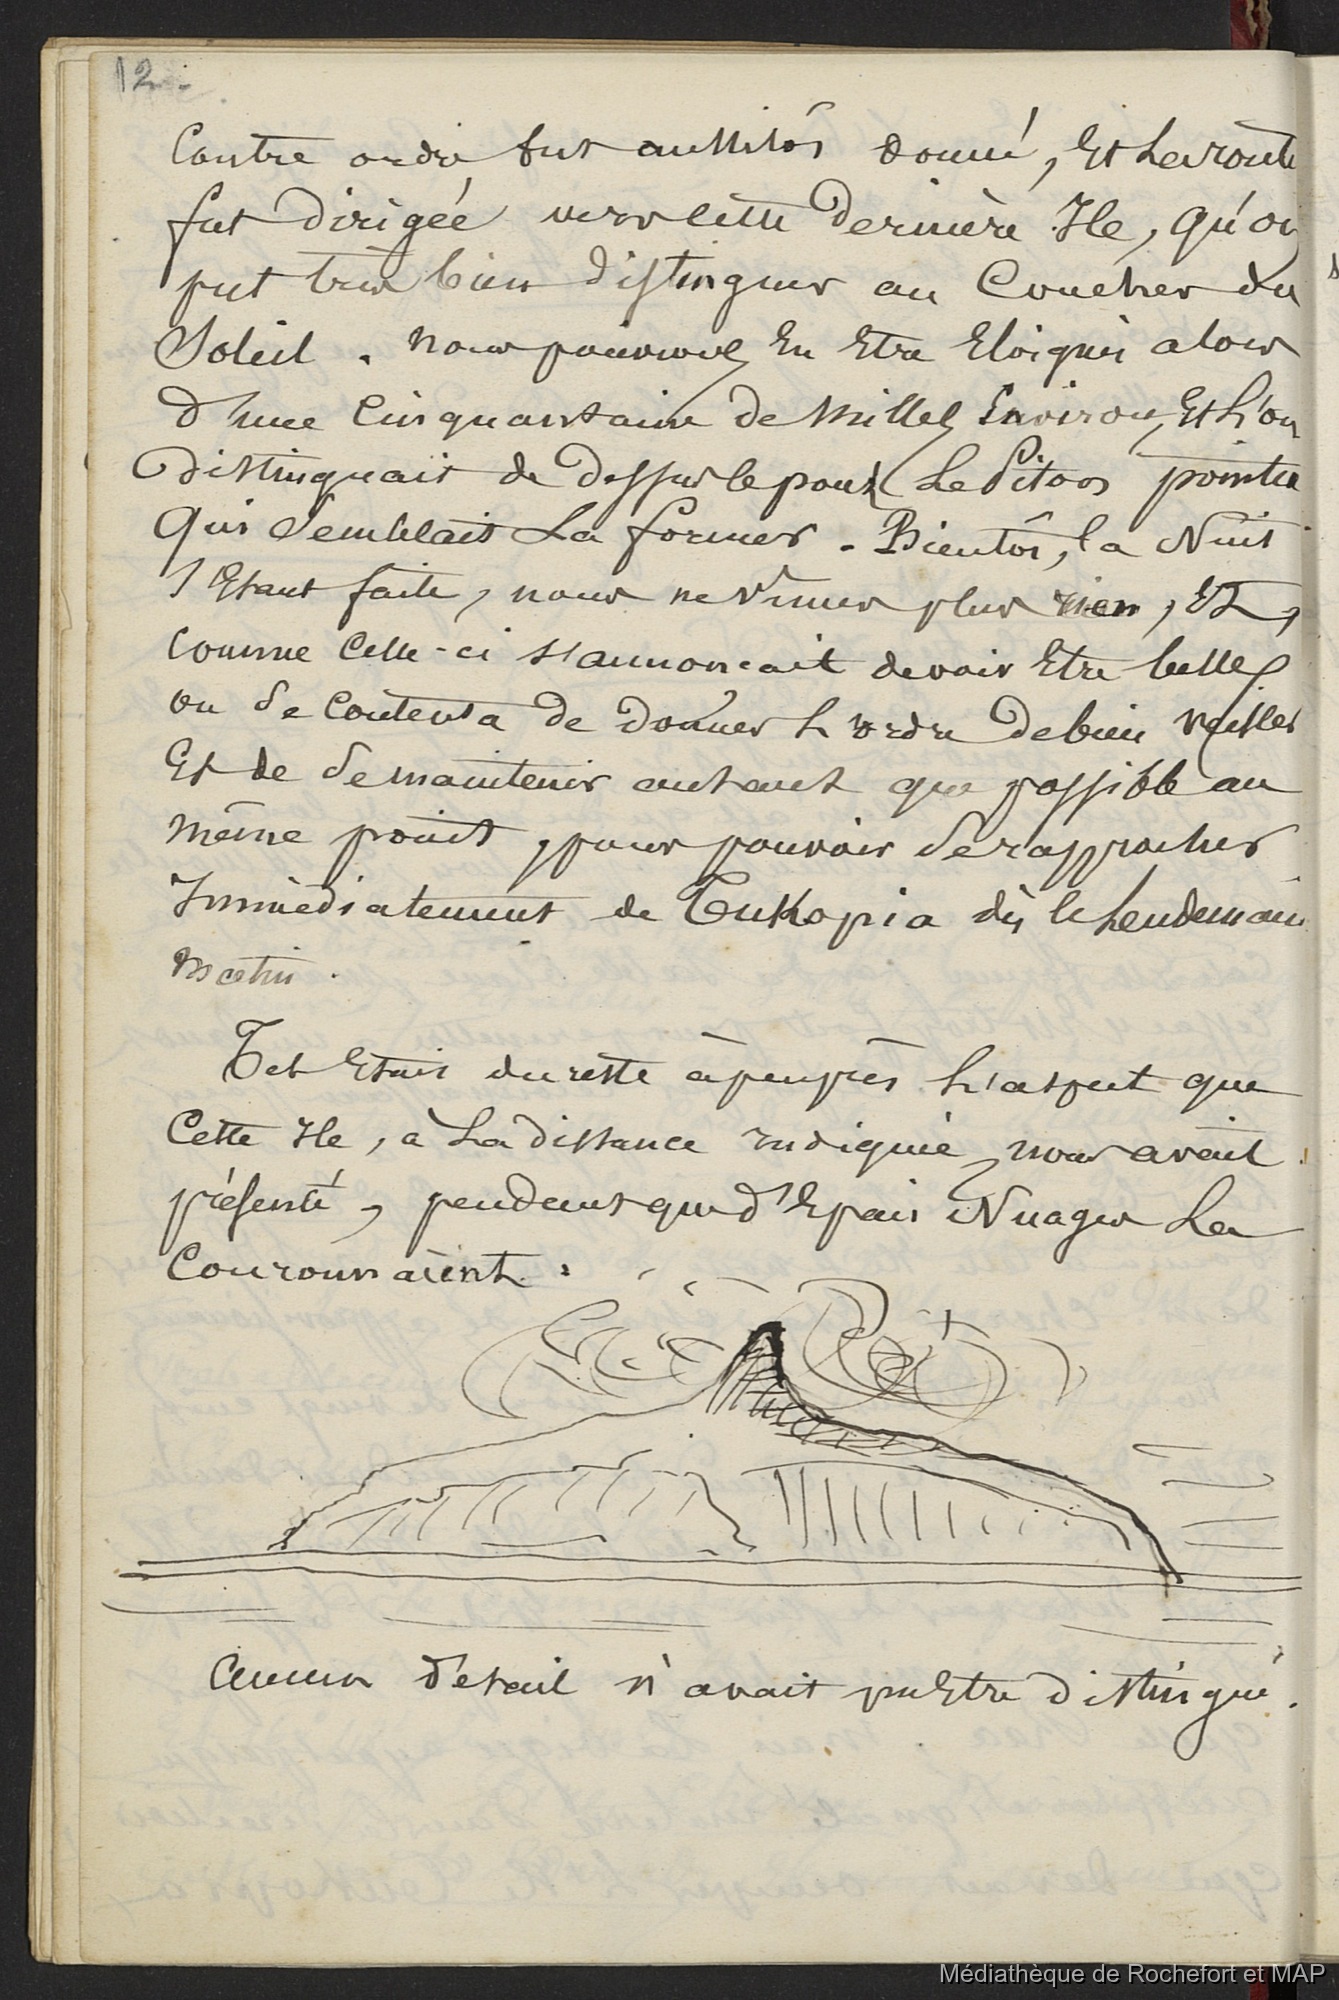 12.
Contre ordre fut aussitôt donné, Et La route
fut Dirigée vers cette Dernière Ile, qu'on
put très bien distinguer au Coucher du
Soleil. Nous pouvions En Etre Eloignés alors
d'une Cinquantaine de Milles Environ, Et L'on
distinguait de Dessus le pont Le Piton pointu
Qui Semblait La former. Bientôt, la Nuit
s'Etant faite, nous ne vîmes plus rien, Et,
comme Celle-ci s'annoncait devoir Etre belle,
on Se Contenta de donner L'ordre de bien veiller
Et de Se maintenir autant que possible au
même point, pour pouvoir Se rapprocher
Immédiatement de Tukopia dès le Lendemain
matin.
Tel Etait du reste à peu près L'aspect que
Cette Ile, à La distance indiquée, nous avait
présenté, pendant que d'Epais Nuages La
Couronnaient :
Aucun détail n'avait pu Etre distingué.
Médiathèque de Rochefort et MAP